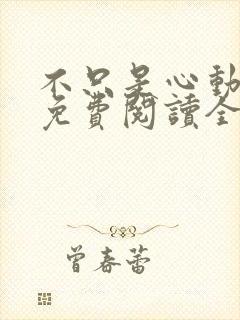 不只是心動
免費閱讀全
曾春蕾